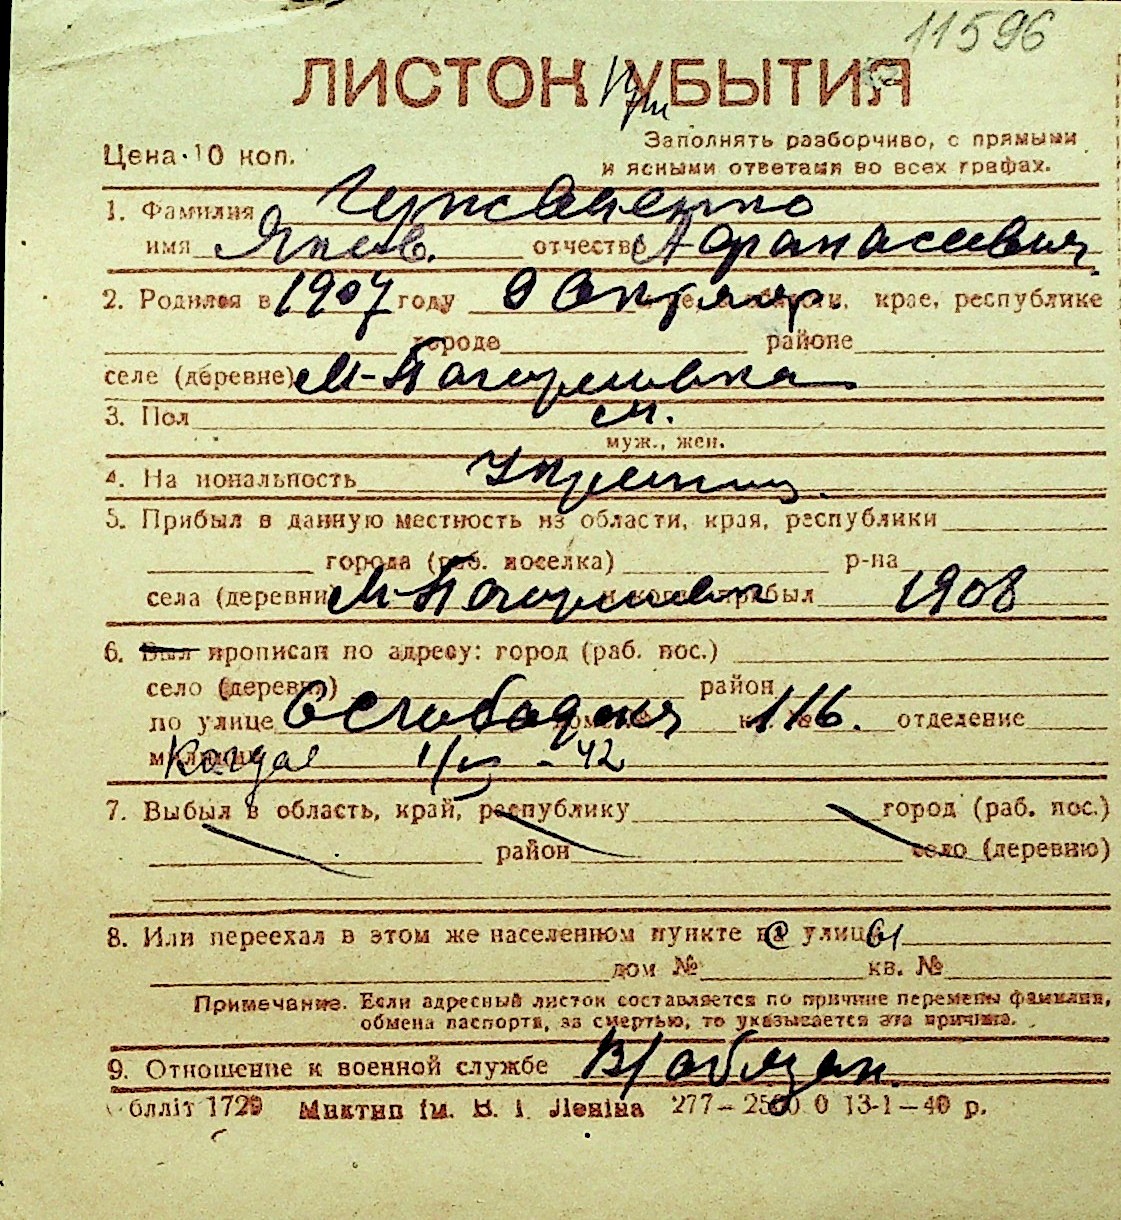 11596
ЛИСТОК УБЫТИЯ
Цена 10 коп.
Заполнять разборчиво, с прямыми
и ясными ответами во всех графах.
1. Фамилия
имя Яков. отчество Афанасиевич
2. Родился в 1907 году области, крае, республике
городе районе
селе (деревне)
3. Пол м.
муж., жен.
4. На иональность Украинец.
5. Прибыл в данную местность из области, края, республики
города (раб. поселка) р-на
села (деревни) прибыл 1908
6. Был прописан по адресу: город (раб. пос.)
село (деревня) район
по улице 116. отделение
милиции - 42
7. Выбыл в область, край, республику город (раб. пос.)
район село (деревню)
8. Или переехал в этом же населенном пункте с улицы
дом № кв. №
Примечание. Если адресный листок составляется по причине перемены фамилии,
обмена паспорта, за смертью, то указывается эта причина.
9. Отношение к военной службе В/обязан.
блліт 1729 Миктип ім. В. І. Леніна 277–2500 0 13-1–40 р.